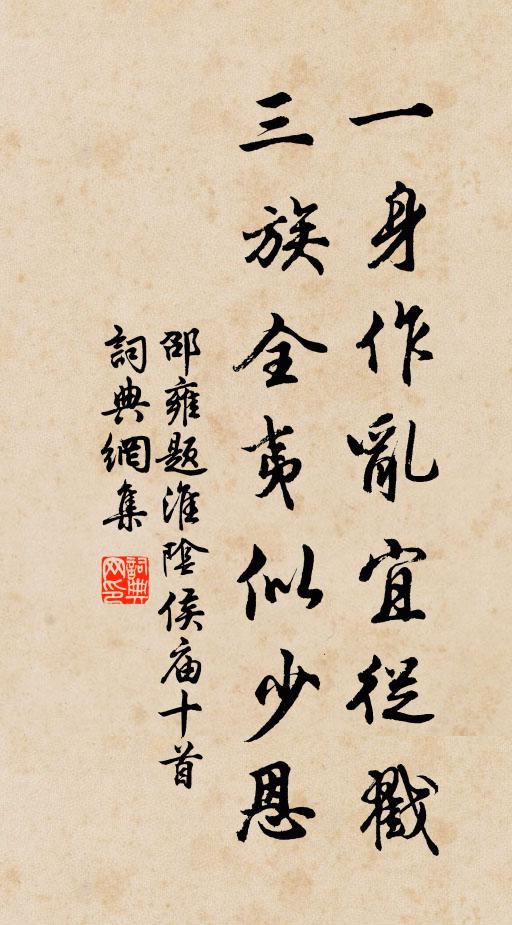 一身作亂宜從戮
三族全夷似少恩
邵雍題淮陰侯庙十首
詞典網集
詞典网印